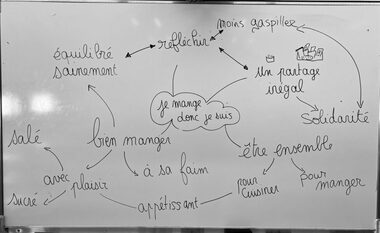 moins gaspiller
réfléchir
équilibré
sainement
un partage
inégal
je mange
donc je suis
solidarité
salé
bien manger
être ensemble
avec
plaisir
à sa faim
pour
cuisiner
pour
manger
sucré
appétissant